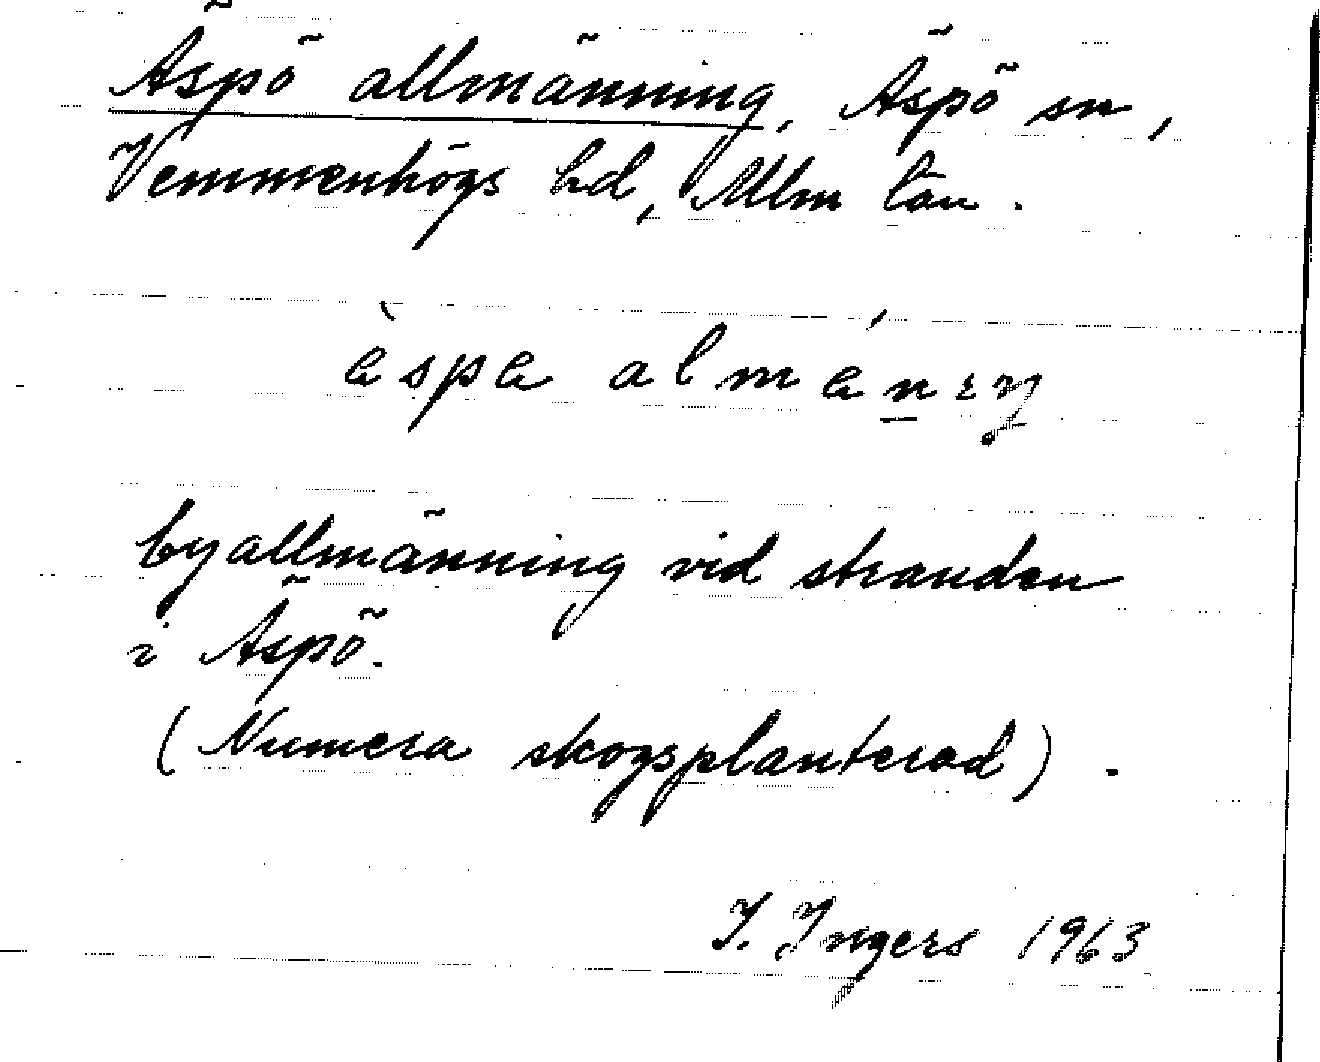 Äspö allmänning, Äspö sn,
Vemmenhögs hd, Mlm län.
byallmänning vid stranden
i Äspö.
(Numera skogsplanterad).
I. Ingers 1963